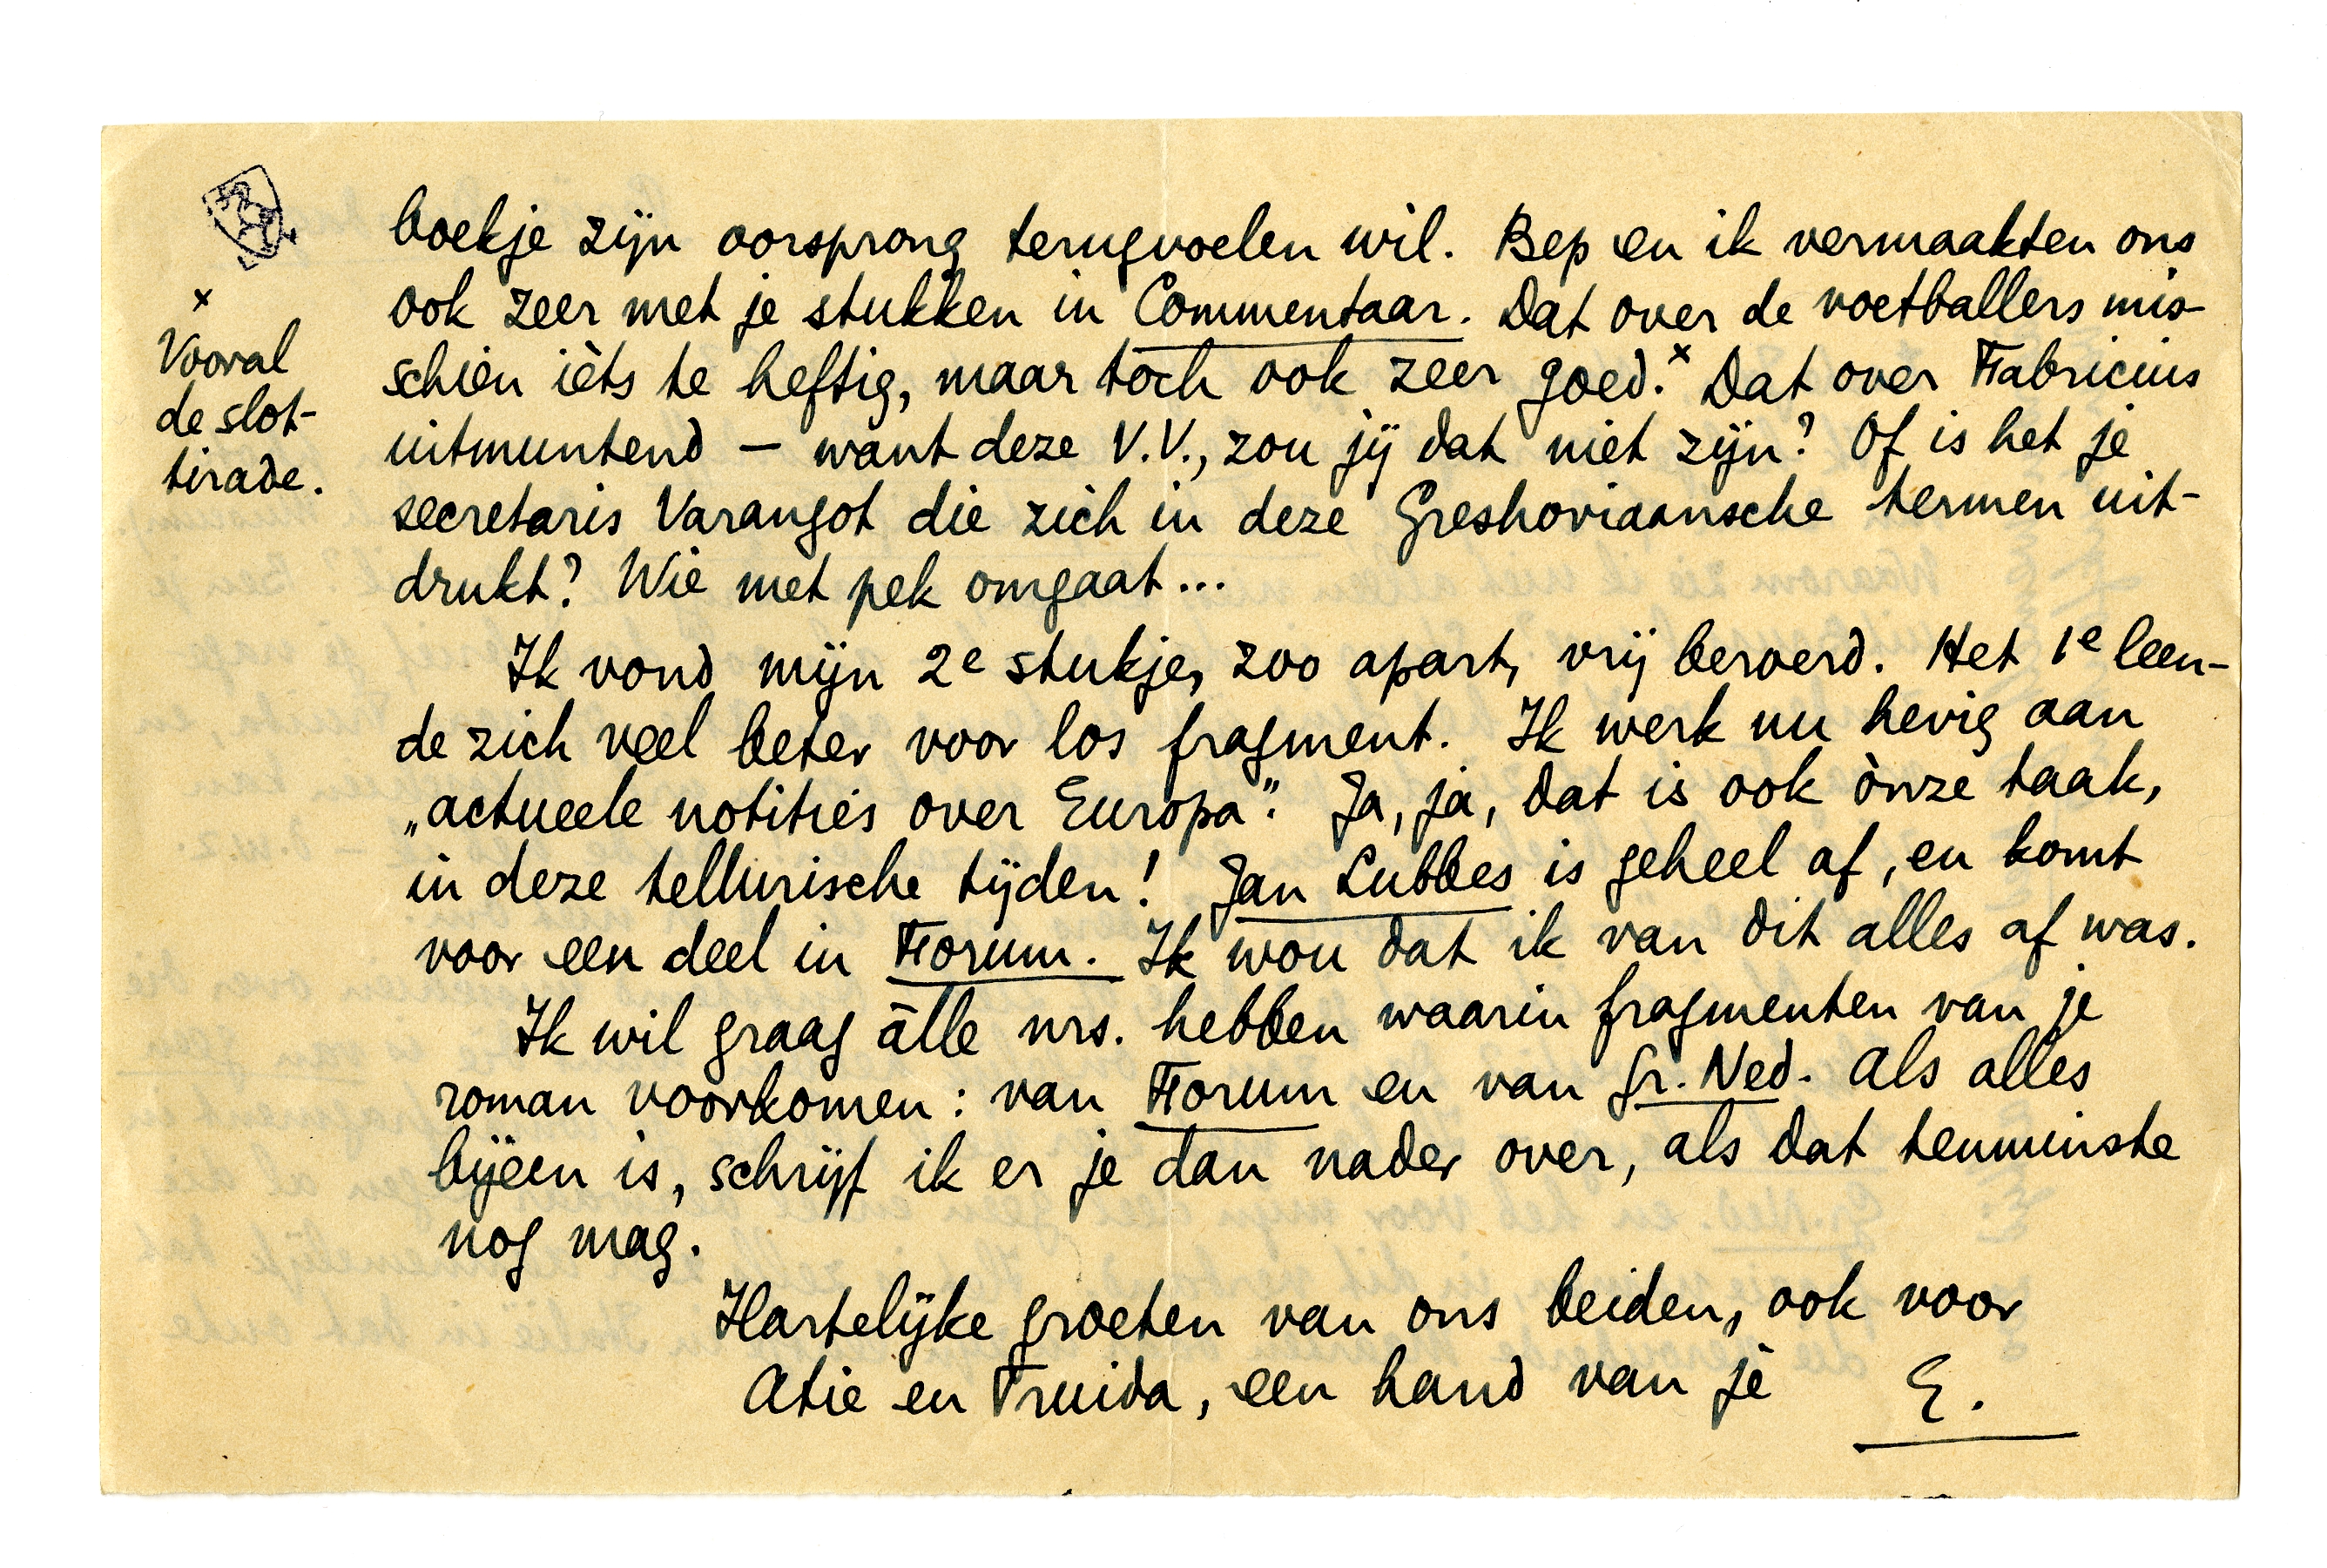 boekje zijn oorsprong terugvoelen wil. Bep en ik vermaakten ons
ook zeer met je stukken in Commentaar. Dat over de voetballers mis-
schien ièts te heftig, maar toch ook zeer goed.ˣ Dat over Fabricius
uitmuntend – want deze V.V., zou jij dat niet zijn? Of is het je
secretaris Varangot die zich in deze Greshoviaansche termen uit-
drukt? Wie met pek omgaat...
Ik vond mijn 2e stukje, zoo apart, vrij beroerd. Het 1e leen-
de zich veel beter voor los fragment. Ik werk nu hevig aan
„actueele notities over Europa”. Ja, ja, dat is ook ònze taak,
in deze tellurische tijden! Jan Lubbes is geheel af, en komt
voor een deel in Forum. Ik wou dat ik van dit alles af was.
Ik wil graag älle nrs. hebben waarin fragmenten van je
roman voorkomen: van Forum en van Gr. Ned. Als alles
bijeen is, schrijf ik er je dan nader over, als dat tenminste
nog mag.
Hartelijke groeten van ons beiden, ook voor
Atie en Truida, een hand van je E.
x
Vooral
de slot-
tirade.